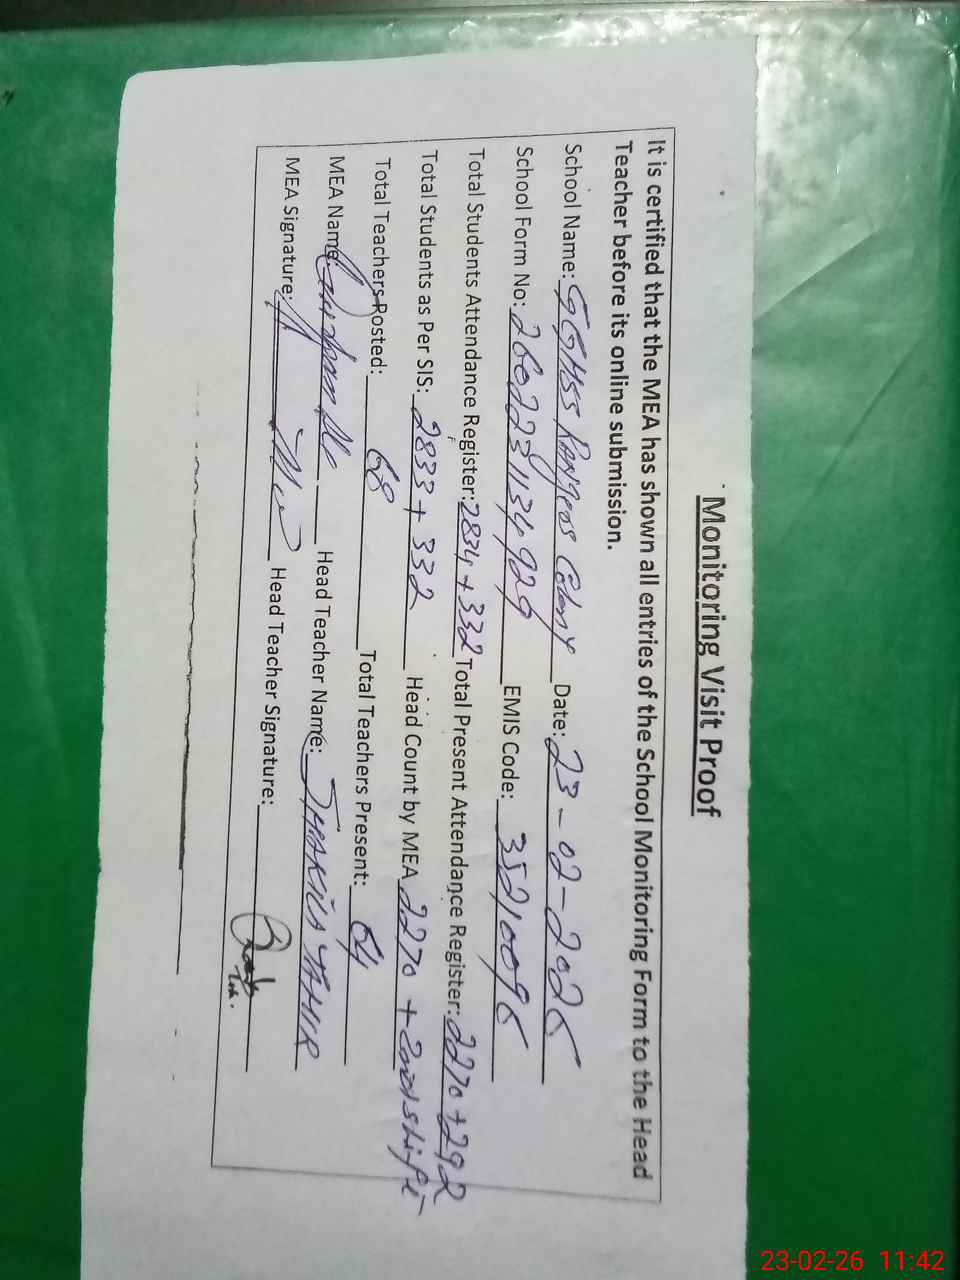 Monitoring Visit Proof
It is certified that the MEA has shown all entries of the School Monitoring Form to the Head
Teacher before its online submission.
School Name: GGHSS Rangers Colony Date: 23-02-2026
School Form No: 260223134929 EMIS Code: 35210096
Total Students Attendance Register: 2834 + 332 Total Present Attendance Register: 2270 + 292
Total Students as Per SIS: 2833 + 332 Head Count by MEA 2270 + 2nd shift
Total Teachers Posted: 68 Total Teachers Present: 64
MEA Name: Head Teacher Name:
MEA Signature: Head Teacher Signature:
23-02-26 11:42